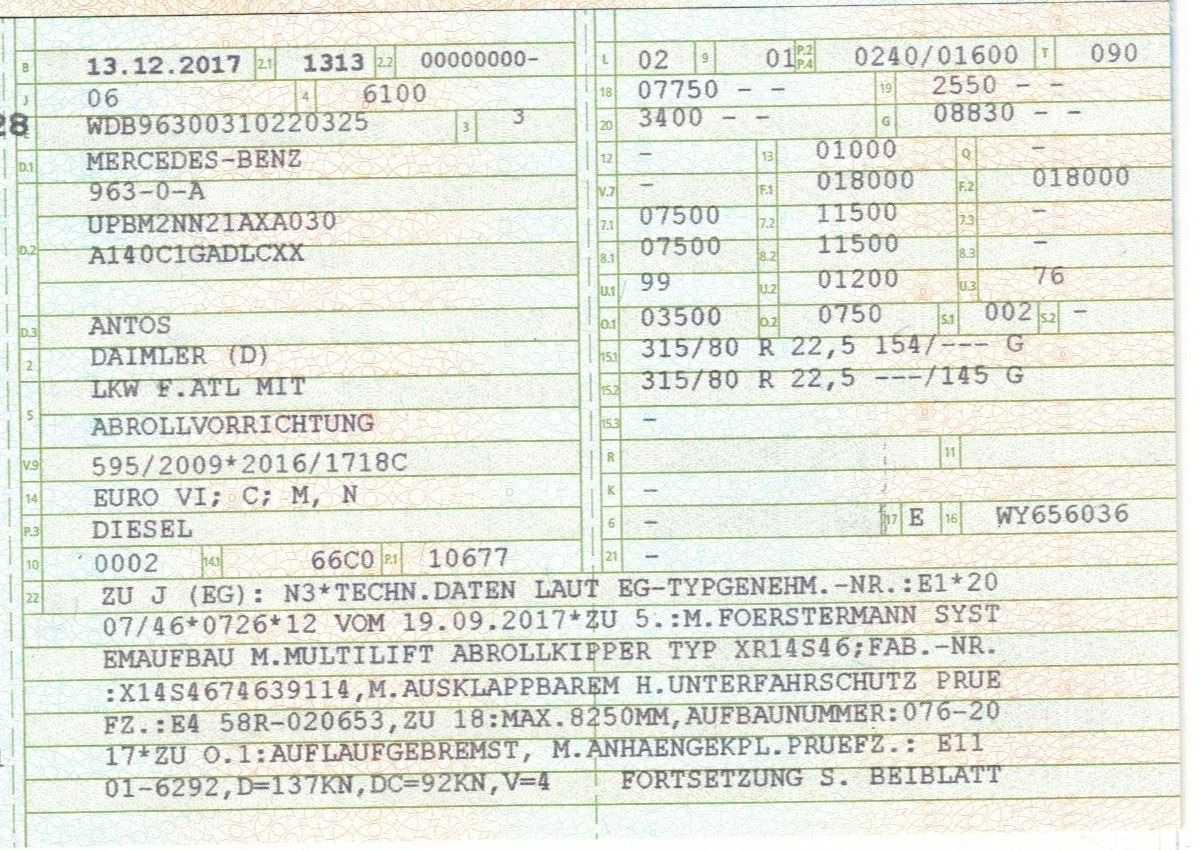 B 13.12.2017 2.1 1313 2.2 00000000-
J 06 4 6100
28 WDB96300310220325 3 3
D.1 MERCEDES-BENZ
963-0-A
UPBM2NN21AXA030
D.2 A140C1GADLCXX
D.3 ANTOS
2 DAIMLER (D)
LKW F.ATL MIT
5 ABROLLVORRICHTUNG
V.9 595/2009*2016/1718C
14 EURO VI; C; M, N
P.3 DIESEL
10 0002 14.1 66C0 P.1 10677
L 02 9 01 P.2 P.4 0240/01600 T 090
18 07750 - - 19 2550 - -
20 3400 - - G 08830 - -
12 - 13 01000 Q -
V.7 - F.1 018000 F.2 018000
7.1 07500 7.2 11500 7.3 -
8.1 07500 8.2 11500 8.3 -
U.1 99 U.2 01200 U.3 76
O.1 03500 O.2 0750 S.1 002 S.2 -
15.1 315/80 R 22,5 154/--- G
15.2 315/80 R 22,5 ---/145 G
15.3 -
R 11
K -
6 - 17 E 16 WY656036
21 -
22 ZU J (EG): N3*TECHN.DATEN LAUT EG-TYPGENEHM.-NR.:E1*20
07/46*0726*12 VOM 19.09.2017*ZU 5.:M.FOERSTERMANN SYST
EMAUFBAU M.MULTILIFT ABROLLKIPPER TYP XR14S46;FAB.-NR.
:X14S4674639114,M.AUSKLAPPBAREM H.UNTERFAHRSCHUTZ PRUE
FZ.:E4 58R-020653,ZU 18:MAX.8250MM,AUFBAUNUMMER:076-20
17*ZU O.1:AUFLAUFGEBREMST, M.ANHAENGEKPL.PRUEFZ.: E11
01-6292,D=137KN,DC=92KN,V=4 FORTSETZUNG S. BEIBLATT